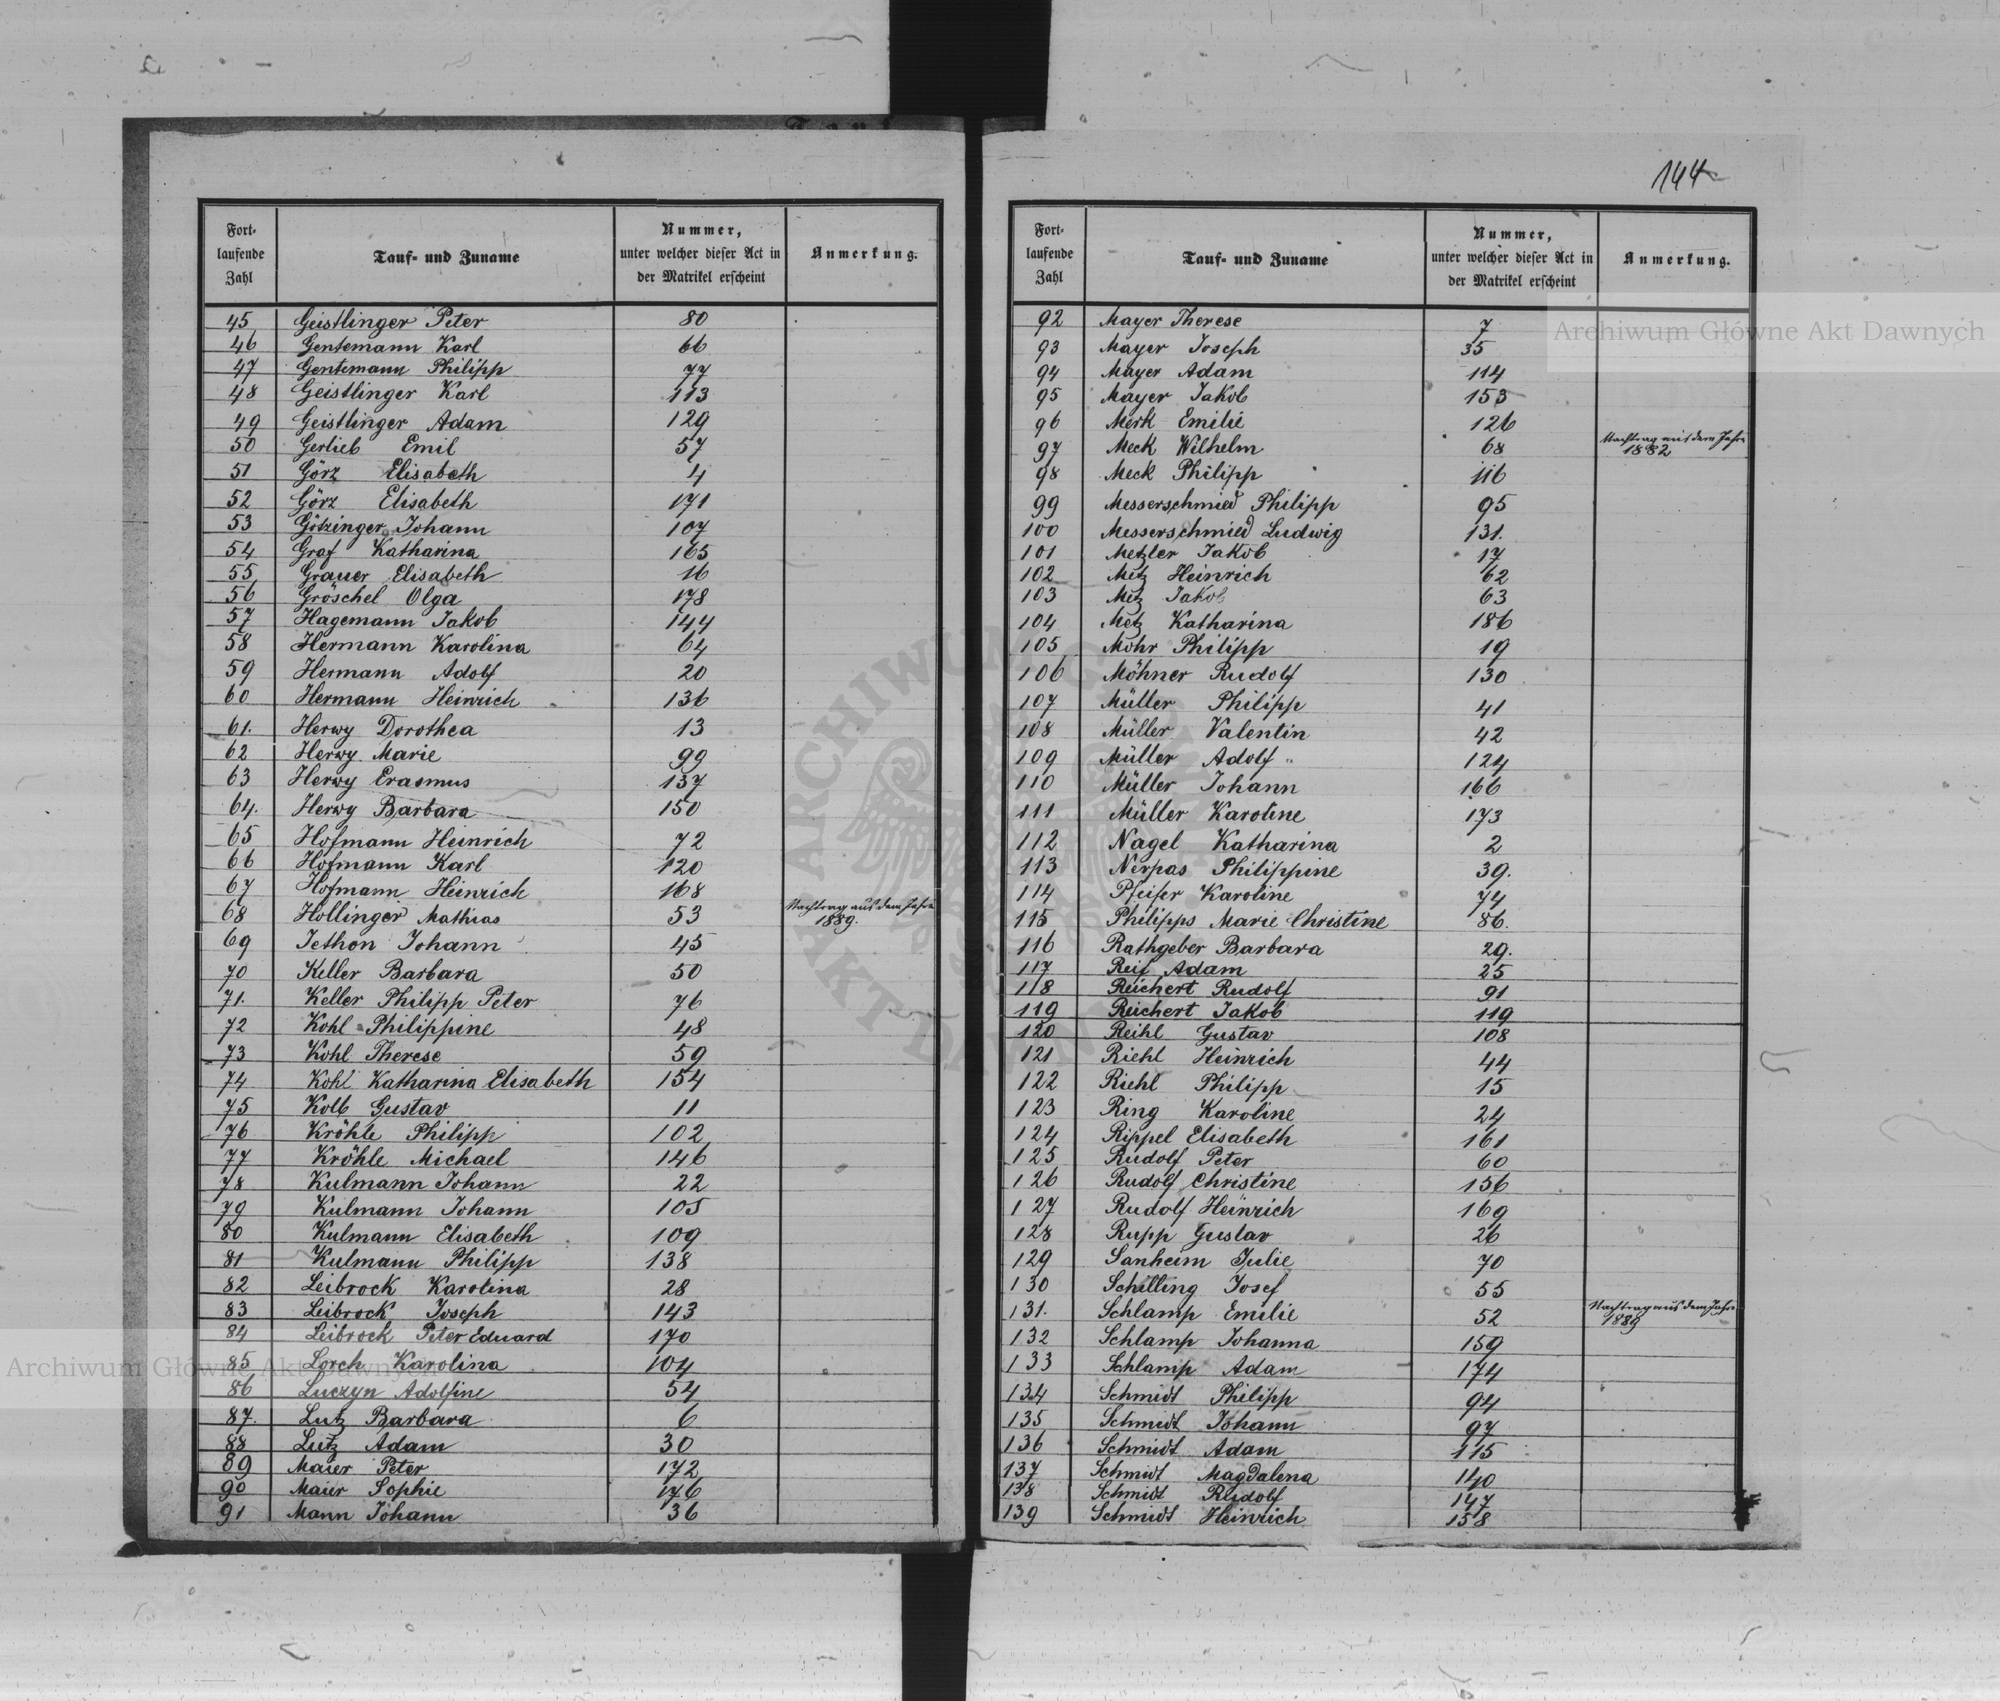 144
Fort-
laufende
Zahl
Tauf- und Zuname
Nummer,
unter welcher dieser Act in
der Matrikel erscheint
Anmerkung.
45 Geistlinger Peter 80
46 Gentemann Karl 66
47 Gentemann Philipp 77
48 Geistlinger Karl 113
49 Geistlinger Adam 129
50 Gerlieb Emil 57
51 Görz Elisabeth 4
52 Görz Elisabeth 171
53 Götzinger Johann 107
54 Graf Katharina 165
55 Grauer Elisabeth 16
56 Gröschel Olga 178
57 Hagemann Jakob 144
58 Hermann Karolina 64
59 Hermann Adolf 20
60 Hermann Heinrich 136
61. Herwy Dorothea 13
62 Herwy Marie 99
63 Herwy Erasmus 137
64. Herwy Barbara 150
65 Hofmann Heinrich 72
66 Hofmann Karl 120
67 Hofmann Heinrich 168
68 Hollinger Mathias 53 Nachtrag aus dem Jahre
1889.
69 Jethon Johann 45
70 Keller Barbara 50
71. Keller Philipp Peter 76
72 Kohl Philippine 48
73 Kohl Therese 59
74 Kohl Katharina Elisabeth 154
75 Kolb Gustav 11
76 Kröhle Philipp 102
77 Kröhle Michael 146
78 Kulmann Johann 22
79 Kulmann Johann 105
80 Kulmann Elisabeth 109
81 Kulmann Philipp 138
82 Leibrock Karolina 28
83 Leibrock Joseph 143
84 Leibrock Peter Eduard 170
85 Lorch Karolina 104
86 Luczyn Adolfine 54
87. Lutz Barbara 6
88 Lutz Adam 30
89 Maier Peter 172
90 Maier Sophie 176
91 Mann Johann 36
Fort-
laufende
Zahl
Tauf- und Zuname
Nummer,
unter welcher dieser Act in
der Matrikel erscheint
Anmerkung.
92 Mayer Therese 7
93 Mayer Joseph 35
94 Mayer Adam 114
95 Mayer Jakob 153
96 Merk Emilie 126
97 Meck Wilhelm 68 Nachtrag aus dem Jahre
1882
98 Meck Philipp 116
99 Messerschmied Philipp 95
100 Messerschmied Ludwig 131.
101 Metzler Jakob 17
102 Metz Heinrich 62
103 Metz Jakob 63
104 Metz Katharina 186
105 Mohr Philipp 19
106 Möhner Rudolf 130
107 Müller Philipp 41
108 Müller Valentin 42
109 Müller Adolf 124
110 Müller Johann 166
111 Müller Karoline 173
112 Nagel Katharina 2
113 Nirpas Philippine 39.
114 Pfeifer Karoline 74
115 Philipps Marie Christine 86.
116 Rathgeber Barbara 29.
117 Reif Adam 25
118 Reichert Rudolf 91
119 Reichert Jakob 119
120 Reihl Gustav 108
121 Riehl Heinrich 44
122 Riehl Philipp 15
123 Ring Karoline 24
124 Rippel Elisabeth 161
125 Rudolf Peter 60
126 Rudolf Christine 156
127 Rudolf Heinrich 169
128 Rupp Gustav 26
129 Sanheim Julie 70
130 Schilling Josef 55
131. Schlamp Emilie 52 Nachtrag aus dem Jahre
1889
132 Schlamp Johanna 159
133 Schlamp Adam 174
134 Schmidt Philipp 94
135 Schmidt Johann 97
136 Schmidt Adam 115
137 Schmidt Magdalena 140
138 Schmidt Rudolf 147
139 Schmidt Heinrich 158
Archiwum Główne Akt Dawnych
Archiwum Główne Akt Dawnych